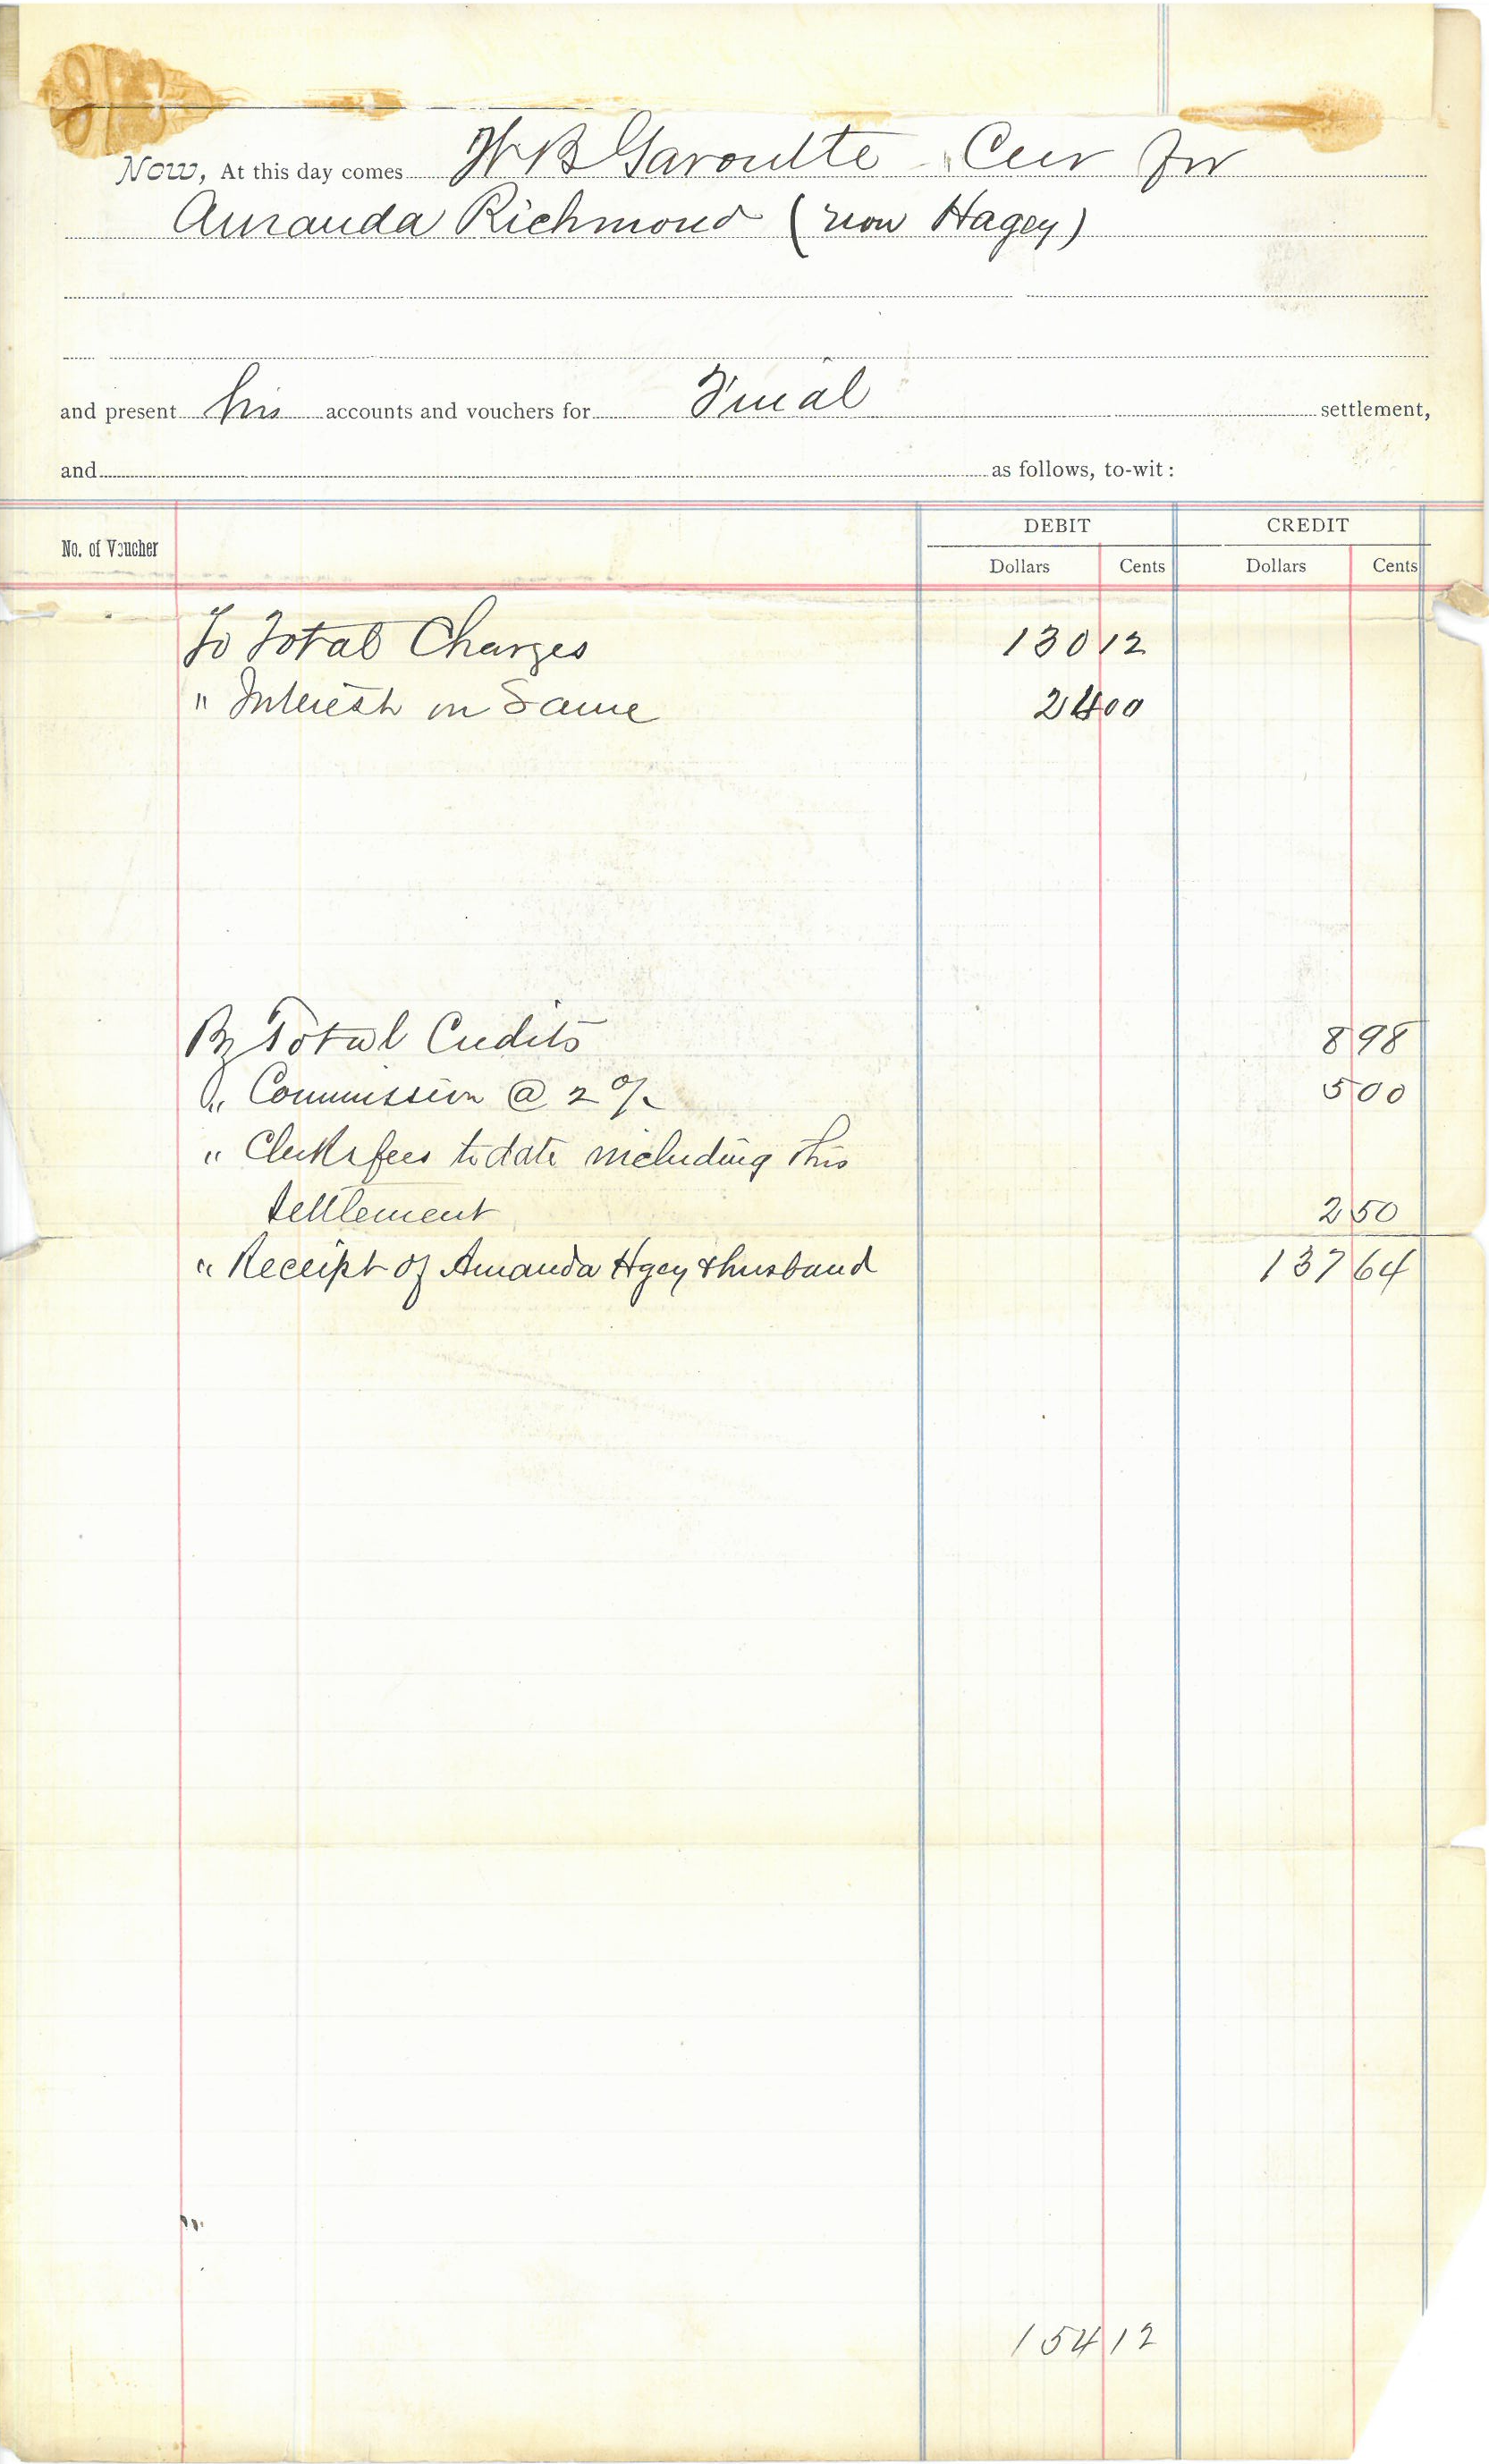 Now, At this day comes W B Garoulte Cur for
Amanda Richmond (now Hagey)
and present his accounts and vouchers for Final settlement,
and as follows, to-wit:
No. of Voucher DEBIT CREDIT
Dollars Cents Dollars Cents
To Total Charges 130 12
" Interest on Same 24 00
By Total Credits 8 98
" Commission @ 2 % 5 00
" Clerks fees to date including this
settlement 2 50
" Receipt of Amanda Hgey & husband 137 64
154 12